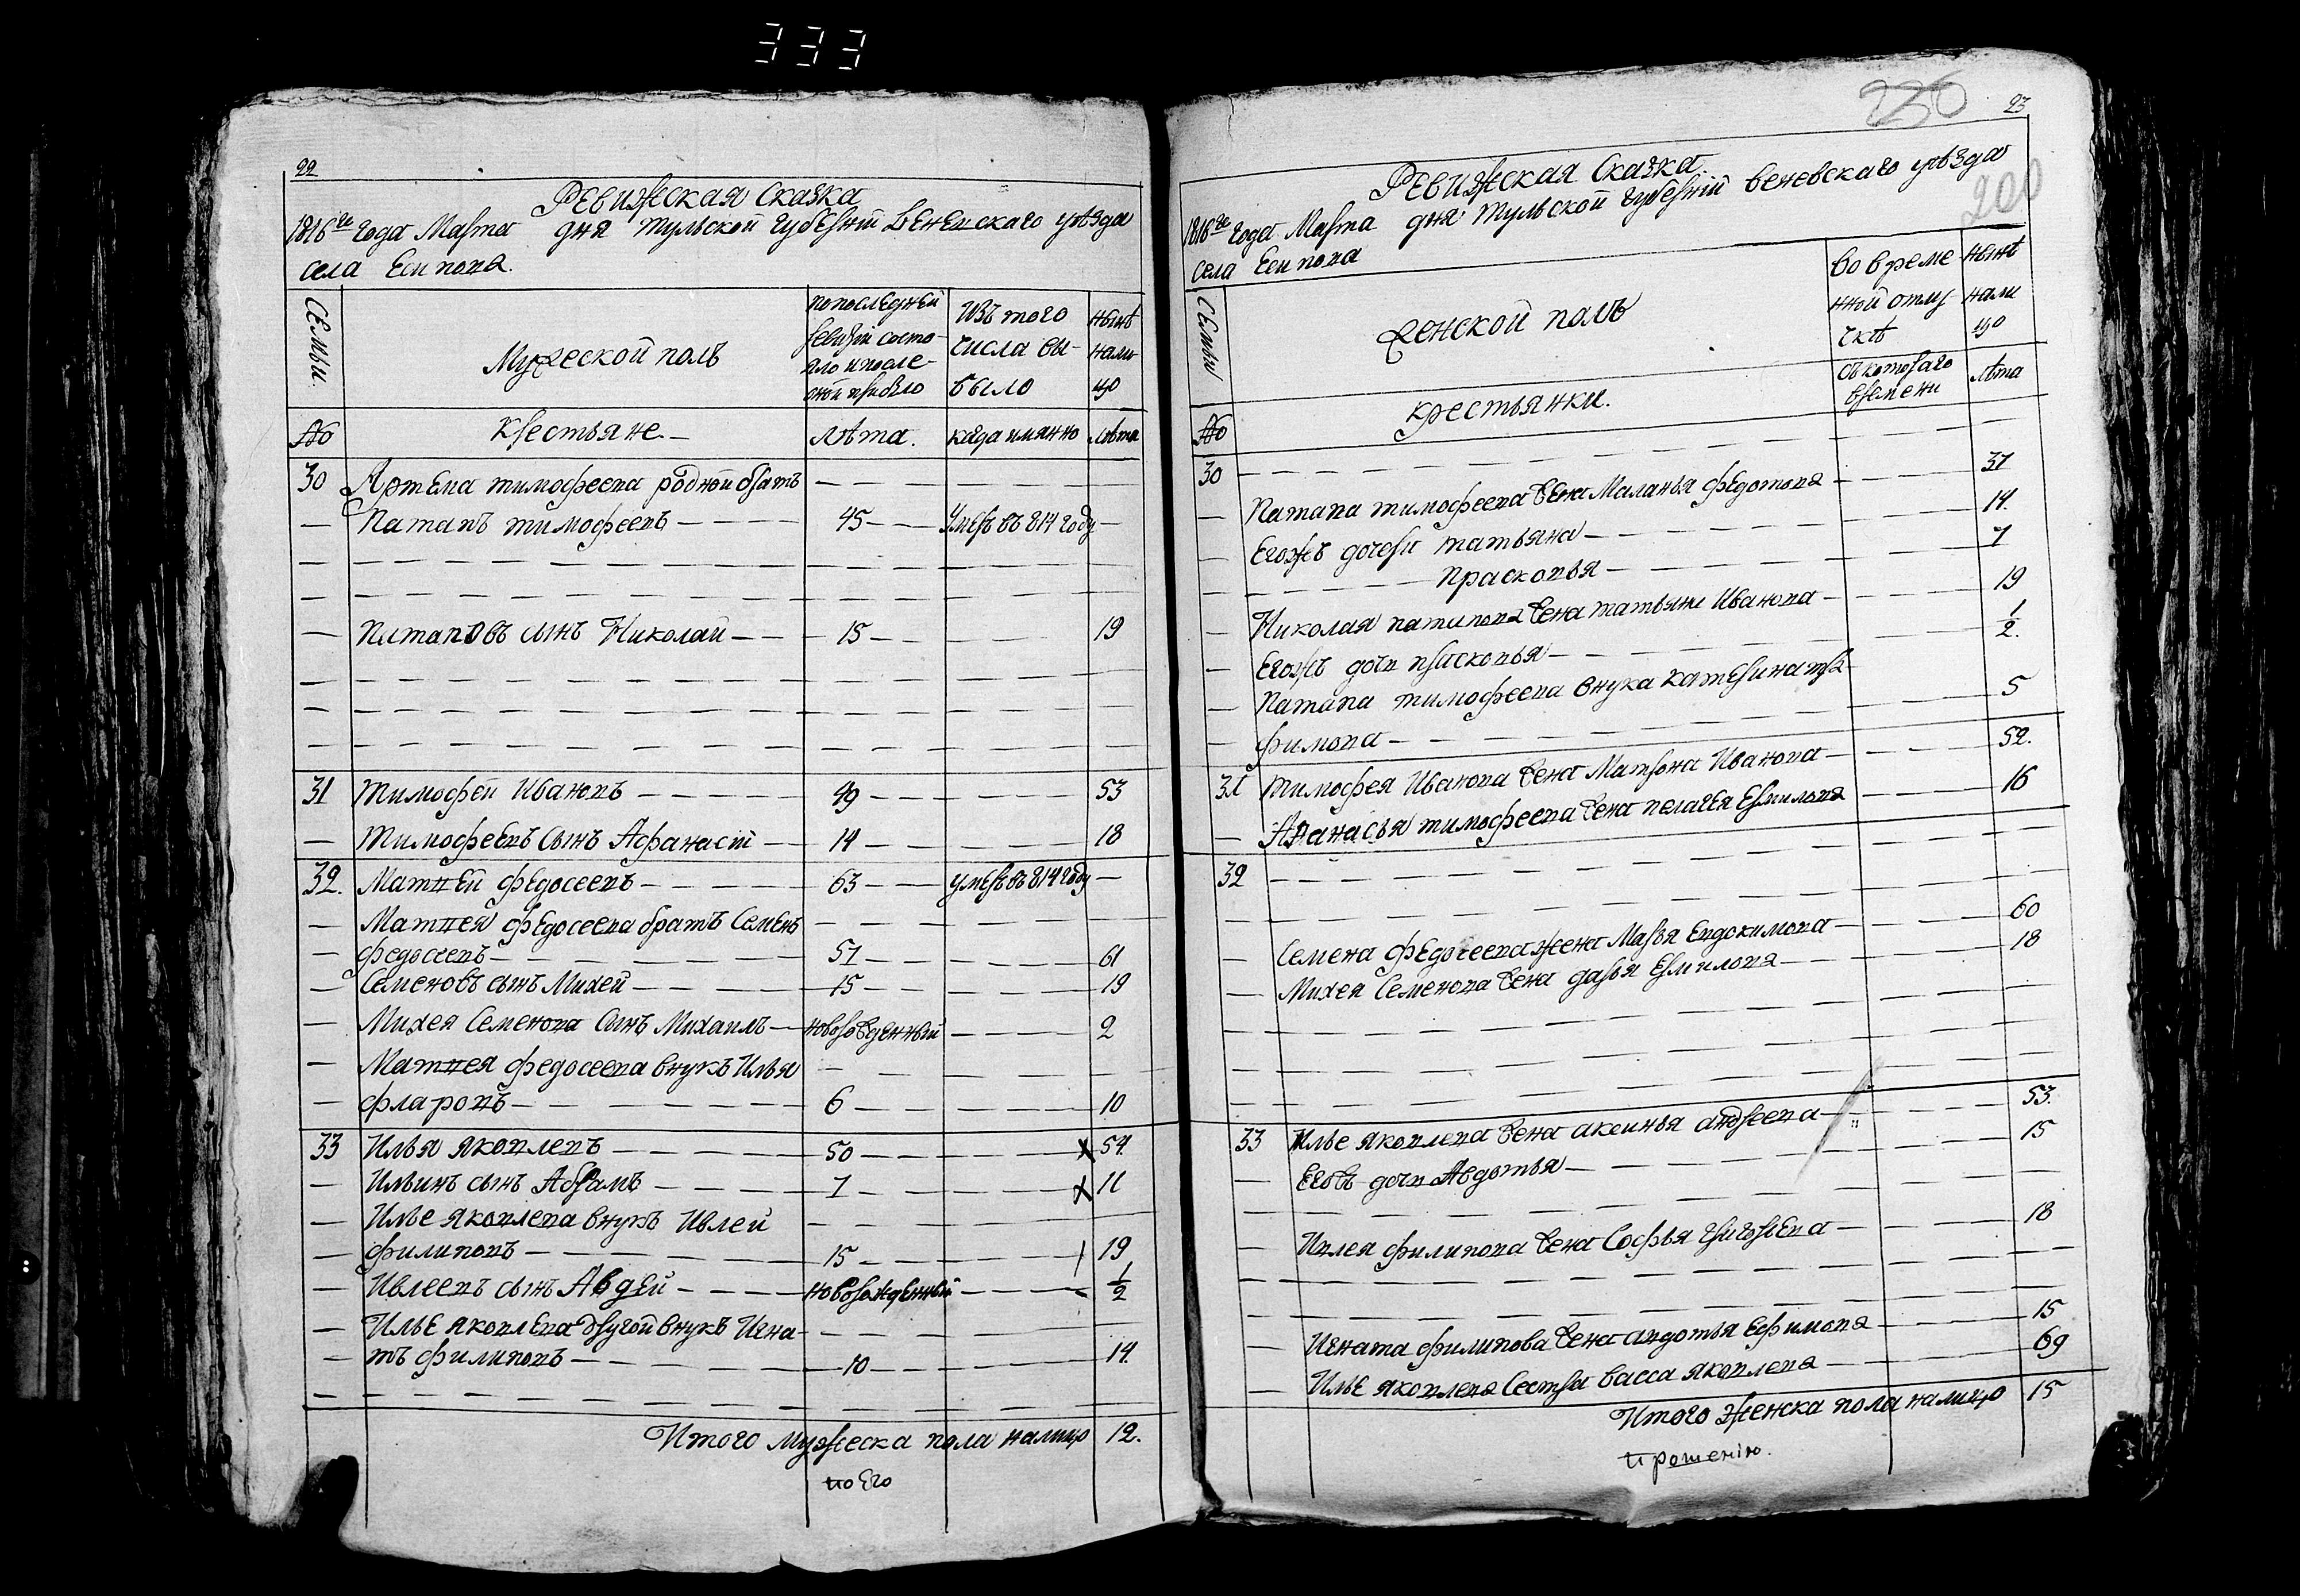 333
22
Ревижская Сказка
1816го года Марта дня тульской губернiи Веневскаго уѣзда
села Есипова.
Семьи.
Мужеской полъ
по последней ревизiи состояло и после оной прибыло
изъ того числа выбыло
нынѣ налицо
№
Крестьяне.
Лѣта.
когда имянно
лѣта
30 Артема тимофеева родной братъ
Патапъ тимофеевъ 45 умеръ въ 814 году
Патаповъ сынъ Николай 15 19
31 Тимофей Ивановъ 49 53
Тимофеевъ сынъ Афанасiй 14 18
32. Матвей федосеевъ 63 умеръ въ 814 году
Матвея федосеева братъ Семенъ
федосеевъ 57 61
Семеновъ сынъ Михей 15 19
Михея Семенова сынъ Михаилъ новорожденный 2
Матвея федосеева внукъ Илья
фларовъ 6 10
33 Илья яковлевъ 50 54
Ильинъ сынъ Абрамъ 7 11
Илье яковлева внукъ Ивлей
филиповъ 15 19
Ивлеевъ сынъ Авдей новорожденный 1/2
Илье яковлева другой внукъ Игна-
тъ филиповъ 10 14.
Итого мужеска пола налицо 12.
по Его
250
23
200
Ревижская Сказка
1816го года Марта дня тульской губернiи веневскаго уѣзда
села Есипова
Семьи
Женской полъ
во временной отлучкѣ
нынѣ налицо
съ котораго времени
лѣта
№
крестьянки.
30
Патапа тимофеева жена Маланья федотова 37
Егожъ дочери татьяна 14.
Прасковья 7
Николая патапова жена татьяна Иванова 19
Егожъ дочь прасковья 1/2.
Патапа тимофеева внука катерина тра-
фимова 5
31 Тимофея Иванова жена Матрона Иванова 52.
Афанасья тимофеева жена пелагея Ермилова 16
32
Семена федосеева жена Марья Евдокимова 60
Михея Семенова жена дарья Ермилова 18
33 Илье яковлева жена аксинья андреева 53.
Егожъ дочь Авдотья 15
Ивлея филипова жена Софья григорьева 18
Игната филипова жена авдотья Ефимова 15
Илье яковлева Сестра васса яковлева 69
Итого женска пола налицо 15
прошенiю.